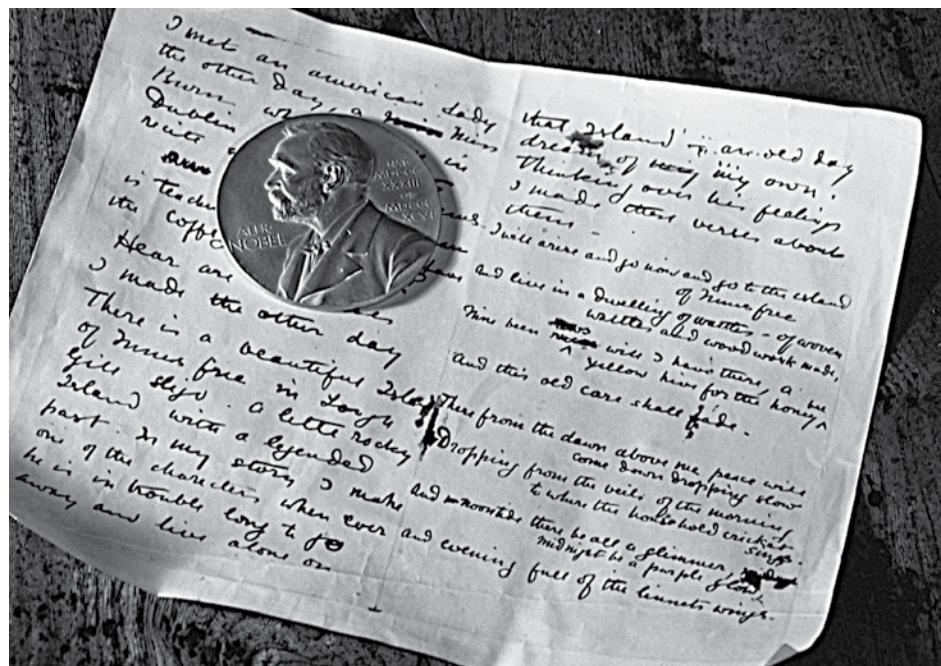 I met an american lady
the other day, a Miss
Burn
Dublin in
recite
is teachi
the coffe
Hear are
I made the other day
There is a beautiful Island
of Innis free in Lough
Gill Sligo. a little rocky
Island with a legended
past. In my story I make
one of the characters when ever
he is in trouble long to go
away and live alone on
that Island – an old day
dream of my own.
Thinking over his feelings
I made these verses about
them –
I will arise and go now and go to the island
of Innis free
and live in a dwelling of wattles – of woven
wattles and wood work made,
Nine bean rows will I have there, a
yellow hive for the honey bee
And this old care shall fade.
There from the dawn above me peace will
come down dropping slow
Dropping from the veils of the morning
to where the household cricket
sings.
And noontide there be all a glimmer,
midnight be a purple glow,
and evening full of the linnets wings.
ALFR.
NOBEL
NAT.
MDCCC
XXXIII
OB.
MDCCC
XCVI